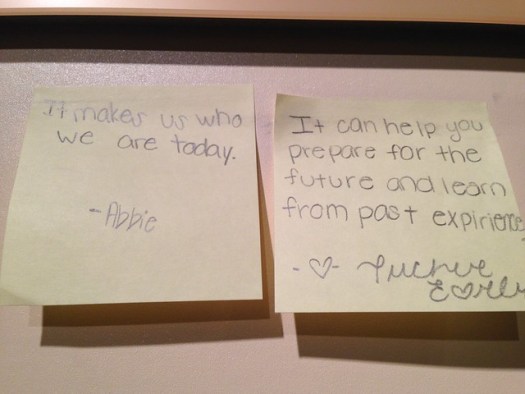 It makes us who
we are today.
-Abbie
It can help you
prepare for the
future and learn
from past expirience
-♡-